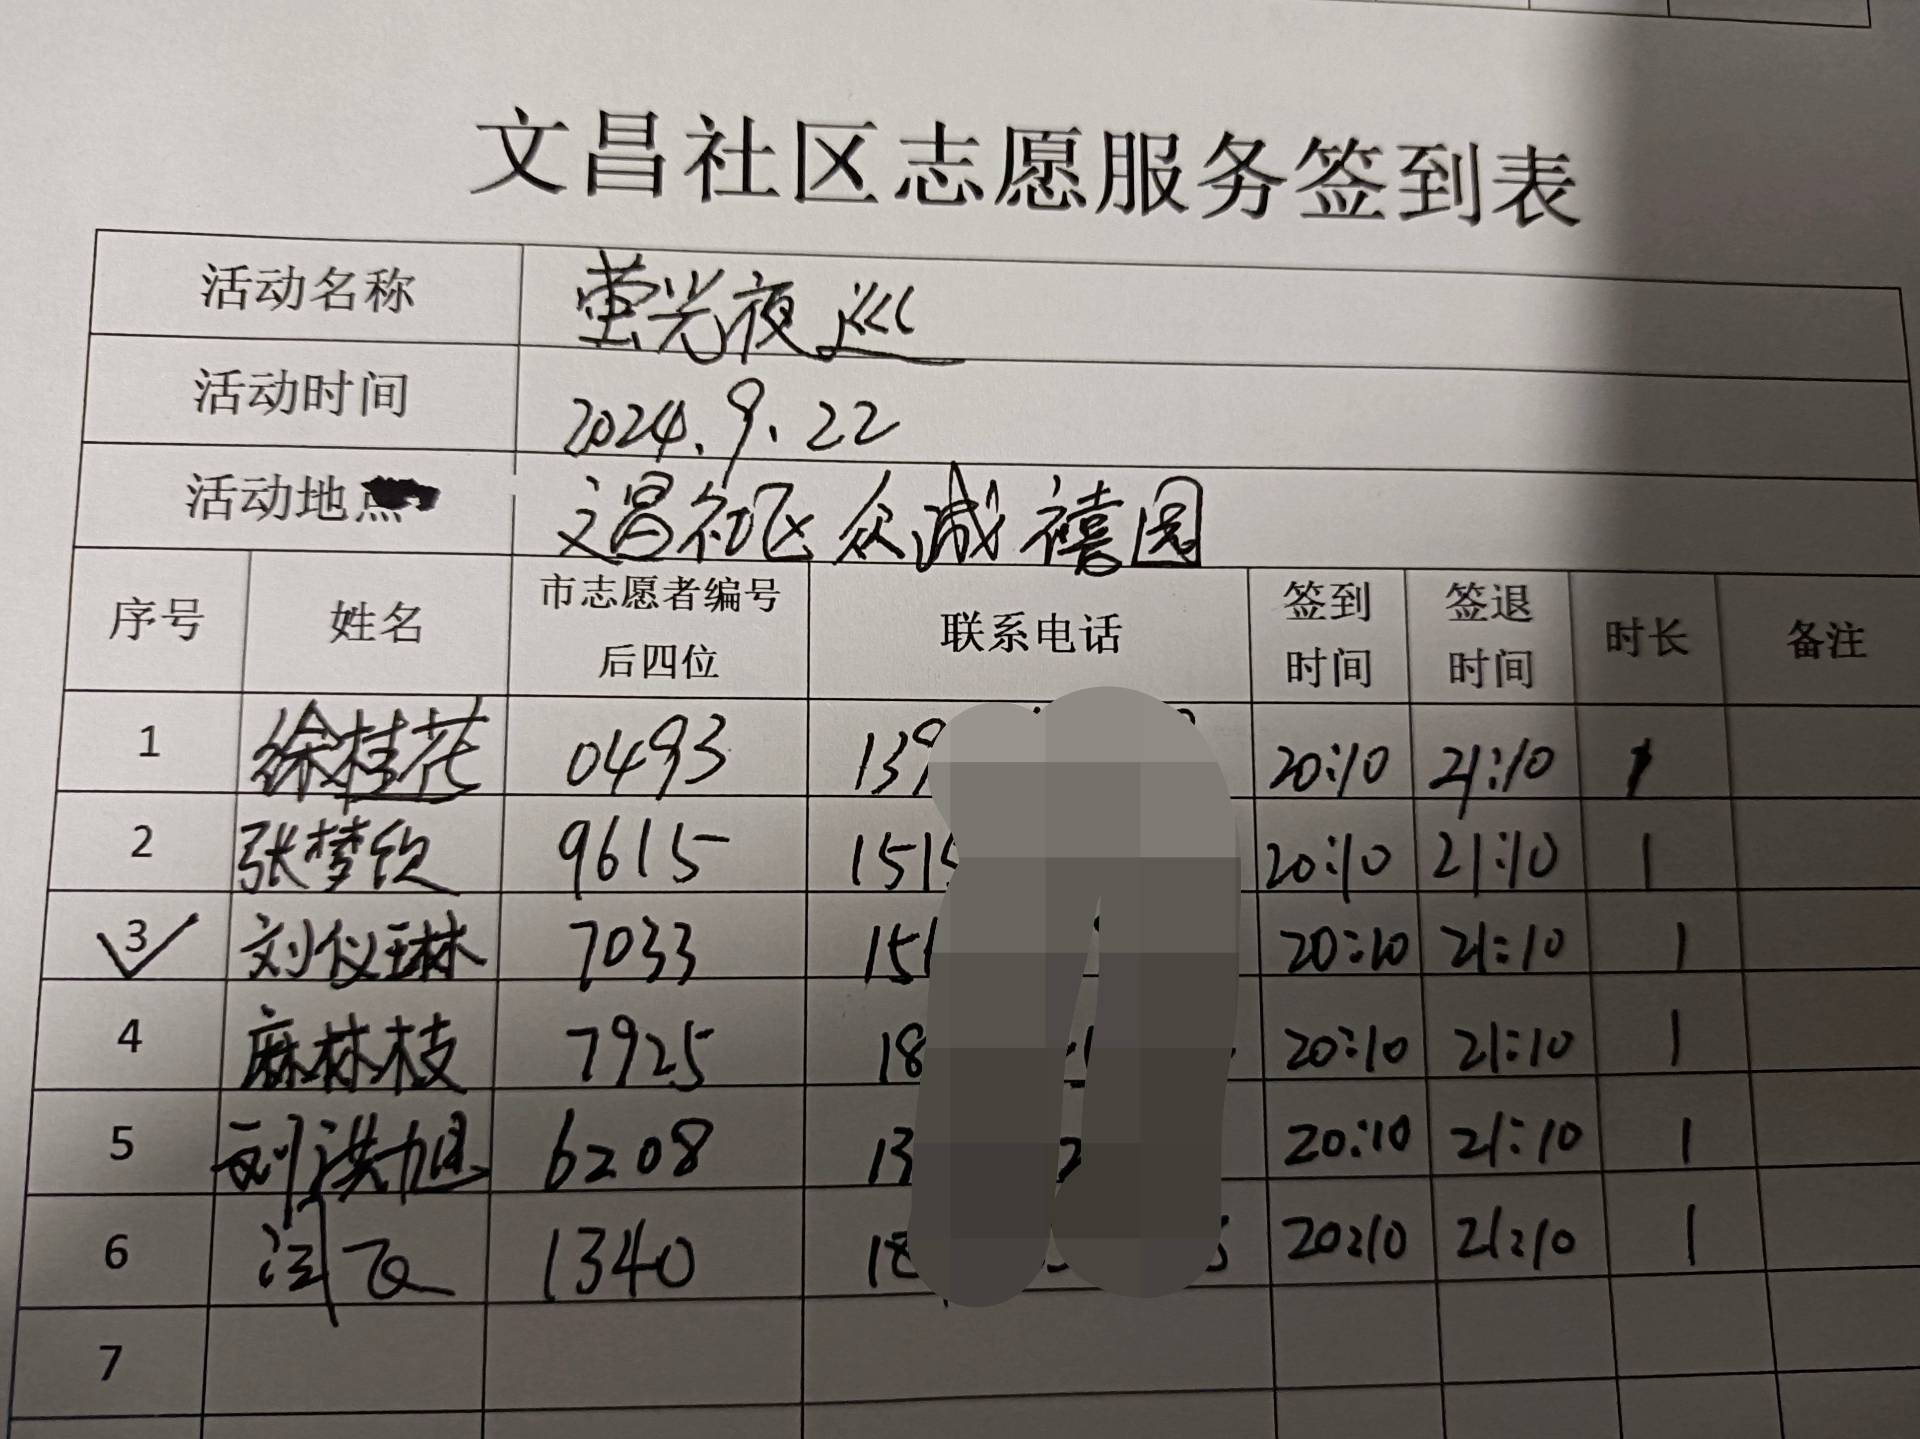 文昌社区志愿服务签到表
活动名称 萤光夜巡
活动时间 2024.9.22
活动地点 文昌社区众诚禧园
序号 姓名 市志愿者编号后四位 联系电话 签到时间 签退时间 时长 备注
1 徐桂花 0493 139 20:10 21:10 1
2 张梦钦 9615 1515 20:10 21:10 1
3 刘仪琳 7033 151 20:10 21:10 1
4 麻林枝 7925 18 20:10 21:10 1
5 刘洪旭 6208 13 2 20:10 21:10 1
6 1340 18 20:10 21:10 1
7